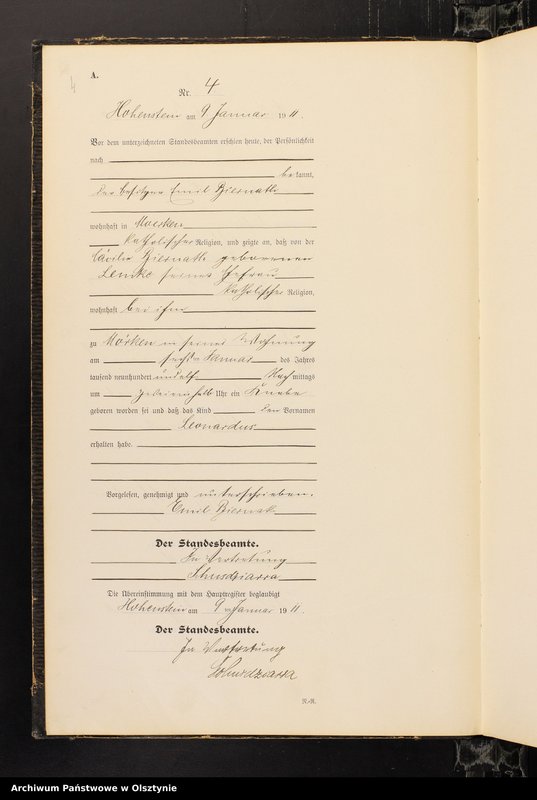 A.
4
Nr. 4
Hohenstein am 9 Januar 1911.
Vor dem unterzeichneten Standesbeamten erschien heute, der Persönlichkeit
nach
bekannt,
der Besitzer Emil Biernatk
wohnhaft in Moerken
katholischer Religion, und zeigte an, daß von der
Cäcilie Biernatk geborenen
Lemke seiner Ehefrau
katholischer Religion,
wohnhaft bei ihm
zu Mörken in seiner Wohnung
am sechsten Januar des Jahres
tausend neunhundert und elf Nachmittags
um halb Uhr ein Knabe
geboren worden sei und daß das Kind den Vornamen
Leonardus
erhalten habe.
Vorgelesen, genehmigt und unterschrieben.
Emil Biernatk
Der Standesbeamte.
In Vertretung
Die Übereinstimmung mit dem Hauptregister beglaubigt
Hohenstein am 9 Januar 1911.
Der Standesbeamte.
In Vertretung
N.-R.
Archiwum Państwowe w Olsztynie